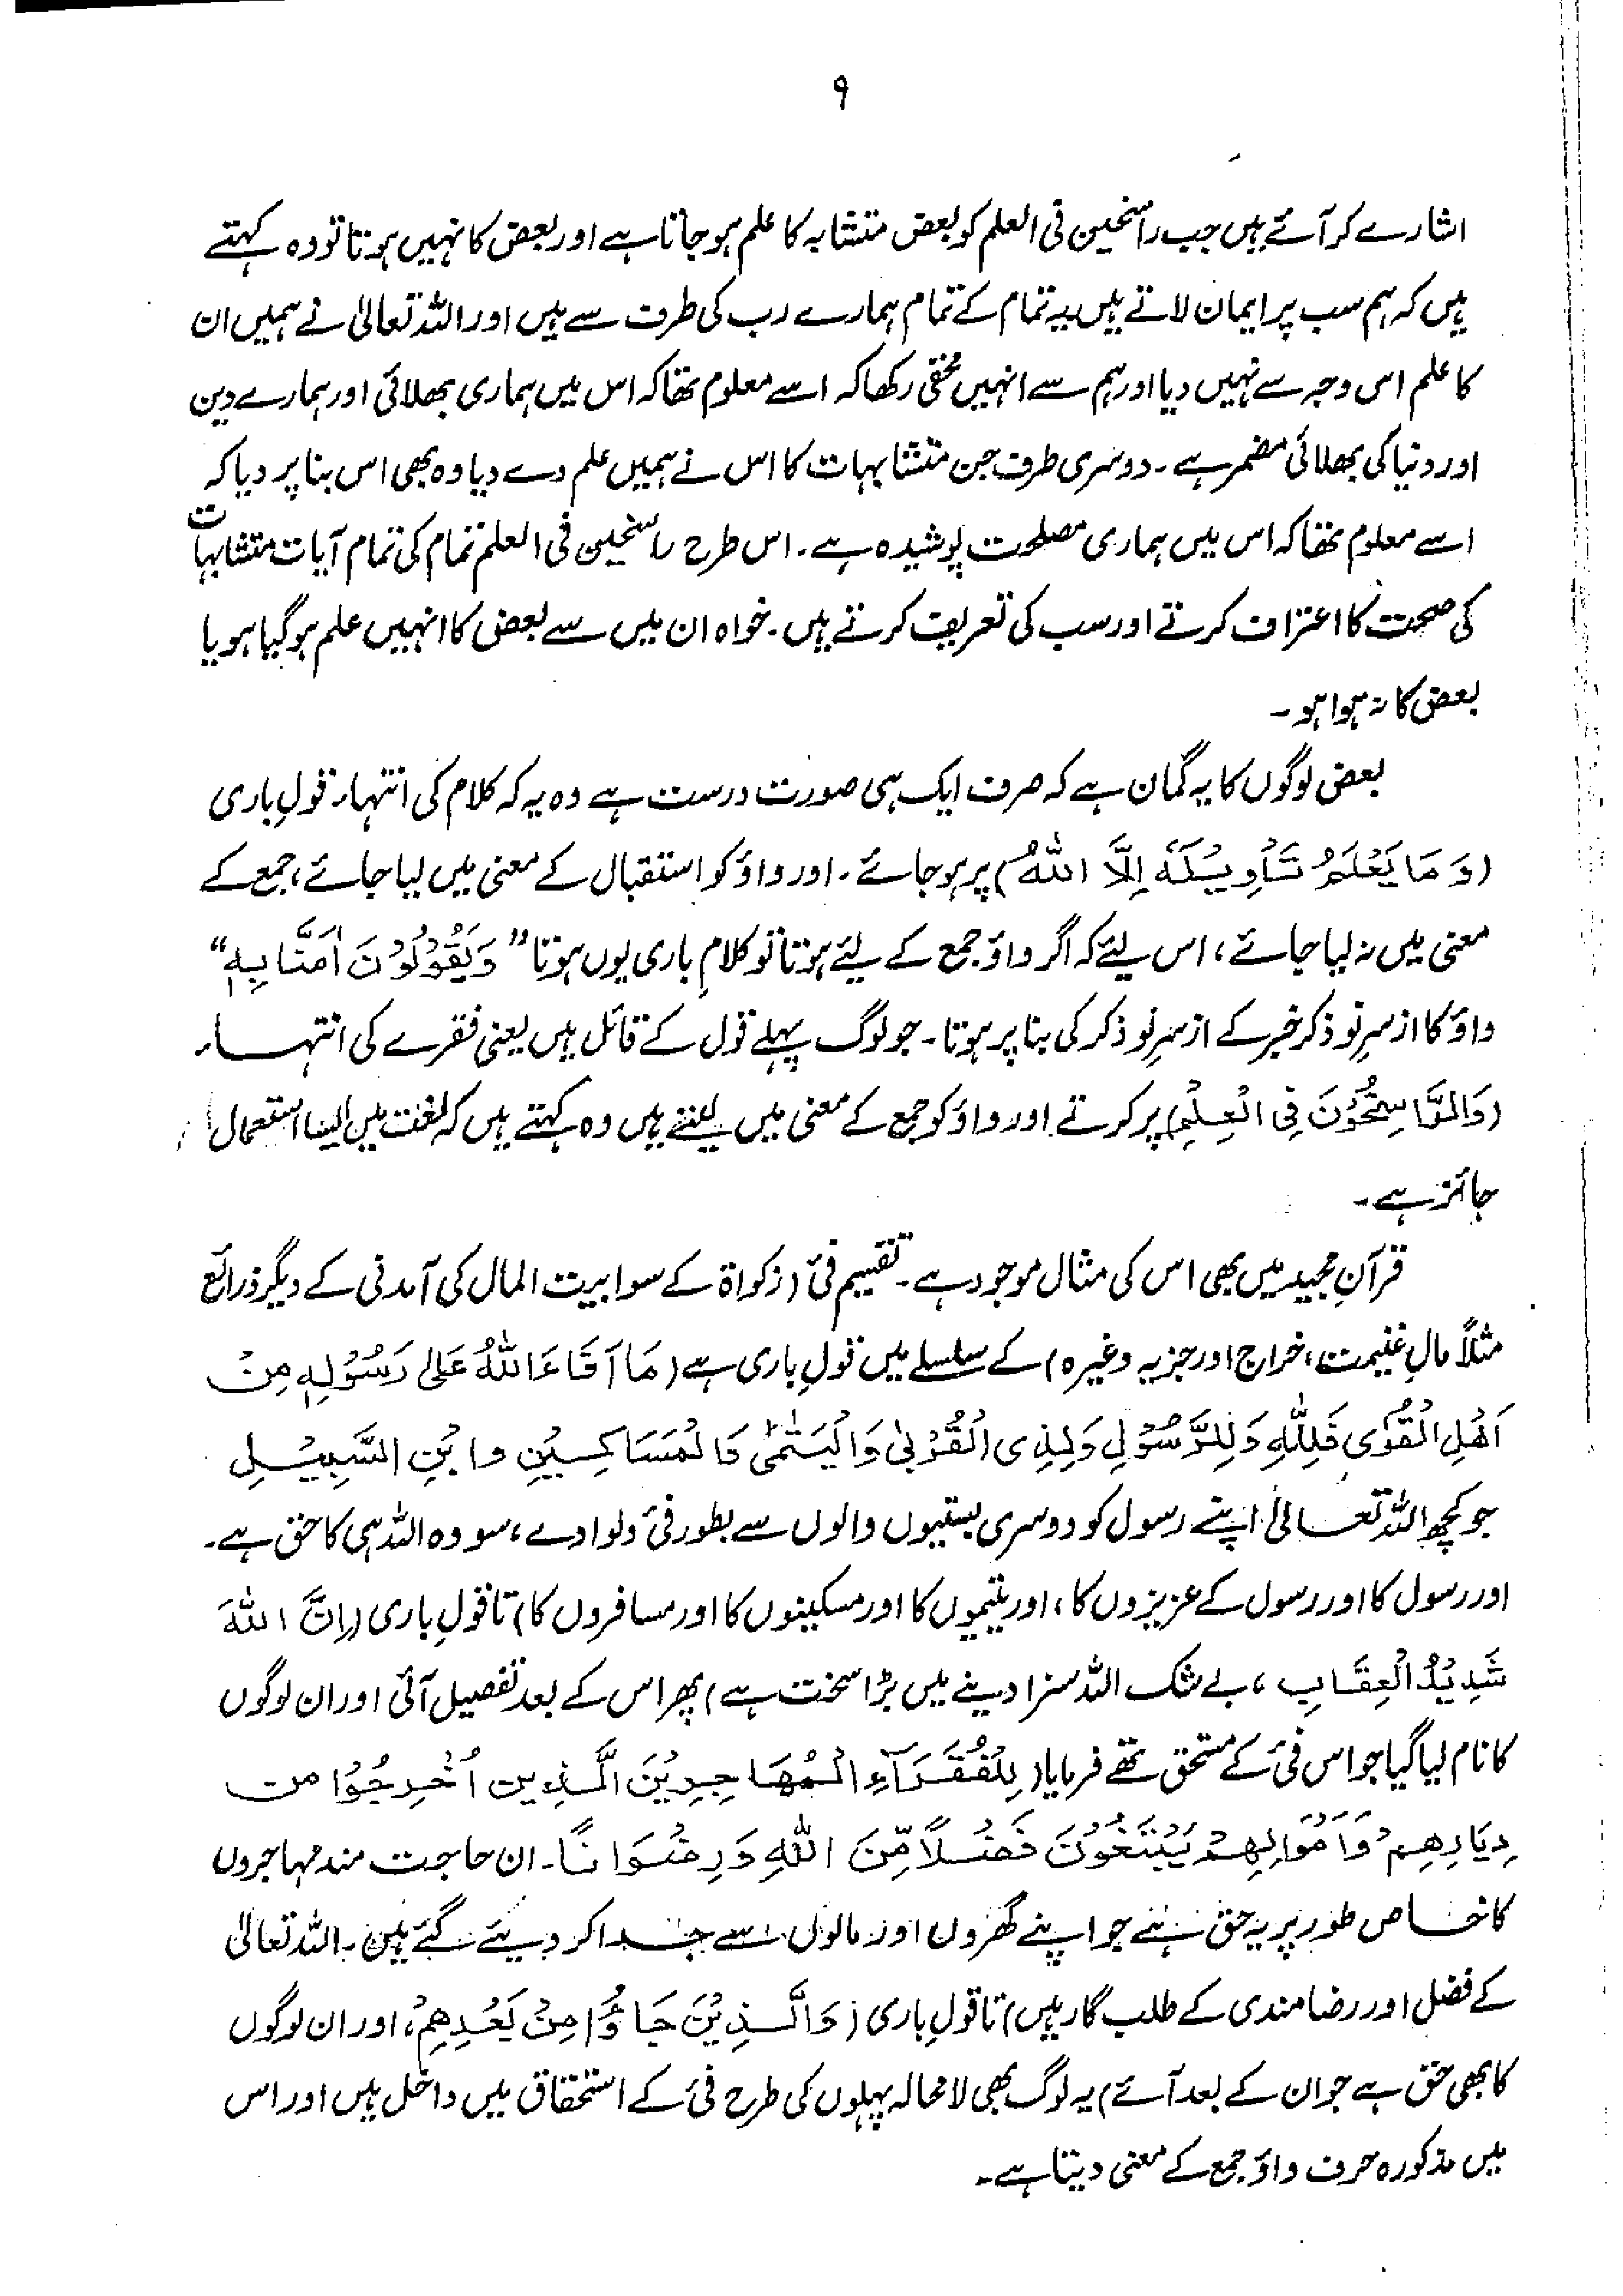 ۹
اشارے کر آئے ہیں جب راسخین فی العلم کو بعض متشابہ کا علم ہو جاتا ہے اور بعض کا نہیں ہوتا تو وہ کہتے
ہیں کہ ہم سب پر ایمان لاتے ہیں یہ تمام کے تمام ہمارے رب کی طرف سے ہیں اور اللہ تعالیٰ نے ہمیں ان
کا علم اس وجہ سے نہیں دیا اور ہم سے انہیں مخفی رکھا کہ اسے معلوم تھا کہ اس میں ہماری بھلائی اور ہمارے دین
اور دنیا کی بھلائی مضمر ہے۔ دوسری طرف جن متشابہات کا اس نے ہمیں علم دے دیا وہ بھی اس بنا پر دیا کہ
اسے معلوم تھا کہ اس میں ہماری مصلحت پوشیدہ ہے۔ اس طرح راسخین فی العلم تمام کی تمام آیات متشابہات
کی صحت کا اعتراف کرتے اور سب کی تعریف کرتے ہیں۔ خواہ ان میں سے بعض کا انہیں علم ہو گیا ہو یا
بعض کا نہ ہوا ہو۔
بعض لوگوں کا یہ گمان ہے کہ صرف ایک ہی صورت درست ہے وہ یہ کہ کلام کی انتہاء قولِ باری
(وَمَا يَعْلَمُ تَأْوِيْلَهٗ اِلَّا اللّٰهُ) پر ہو جائے۔ اور واؤ کو استقبال کے معنی میں لیا جائے، جمع کے
معنی میں نہ لیا جائے، اس لیئے کہ اگر واؤ جمع کے لیئے ہوتا تو کلامِ باری یوں ہوتا ”وَيَقُوْلُوْنَ اٰمَنَّا بِهٖ“
واؤ کا ازسرِنو ذکر خبر کے ازسرِنو ذکر کی بنا پر ہوتا۔ جو لوگ پہلے قول کے قائل ہیں یعنی فقرے کی انتہاء
(وَالرَّاسِخُوْنَ فِی الْعِلْمِ) پر کرتے اور واؤ کو جمع کے معنی میں لیتے ہیں وہ کہتے ہیں کہ لغت میں ایسا استعمال
جائز ہے۔
قرآنِ مجید میں بھی اس کی مثال موجود ہے۔ تقسیم فئ (زکواۃ کے سوا بیت المال کی آمدنی کے دیگر ذرائع
مثلاً مالِ غنیمت، خراج اور جزیہ وغیرہ) کے سلسلے میں قولِ باری ہے (مَا اَفَاءَ اللّٰهُ عَلٰى رَسُوْلِهٖ مِنْ
اَهْلِ الْقُرٰى فَلِلّٰهِ وَلِلرَّسُوْلِ وَلِذِى الْقُرْبٰى وَالْيَتٰمٰى وَالْمَسَاكِيْنِ وابْنِ السَّبِيْلِ
جو کچھ اللہ تعالیٰ اپنے رسول کو دوسری بستیوں والوں سے بطور فئ دلوا دے، سو وہ اللہ ہی کا حق ہے۔
اور رسول کا اور رسول کے عزیزوں کا، اور یتیموں کا اور مسکینوں کا اور مسافروں کا) تا قولِ باری (اِنَّ اللّٰهَ
شَدِيْدُ الْعِقَابِ، بے شک اللہ سزا دینے میں بڑا سخت ہے) پھر اس کے بعد تفصیل آئی اور ان لوگوں
کا نام لیا گیا جو اس فئ کے مستحق تھے فرمایا (لِلْفُقَرَآءِ الْمُهَاجِرِيْنَ الَّذِين اُخْرِجُوْا من
دِيَارِهِمْ وَاَمْوَالِهِمْ يَبْتَغُوْنَ فَضْلًا مِّنَ اللّٰهِ وَرِضْوَانًا۔ ان حاجت مند مہاجروں
کا خاص طور پر یہ حق ہے جو اپنے گھروں اور مالوں سے جدا کر دیئے گئے ہیں۔ اللہ تعالیٰ
کے فضل اور رضامندی کے طلب گار ہیں) تا قولِ باری (وَالَّذِيْنَ جَاؤُا مِنْ بَعْدِهِمْ، اور ان لوگوں
کا بھی حق ہے جو ان کے بعد آئے) یہ لوگ بھی لامحالہ پہلوں کی طرح فئ کے استحقاق میں داخل ہیں اور اس
میں مذکورہ حرف واؤ جمع کے معنی دیتا ہے۔